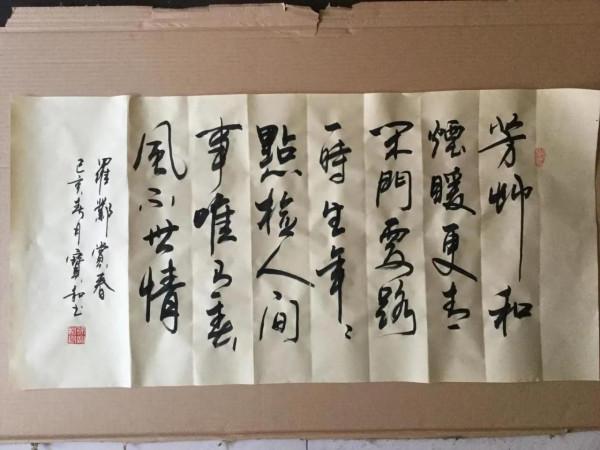 芳艸和
煙暖更青
闲門要路
一時生年〻
點檢人间
事唯有春
風不世情
羅鄴賞春
己亥春月寶和书